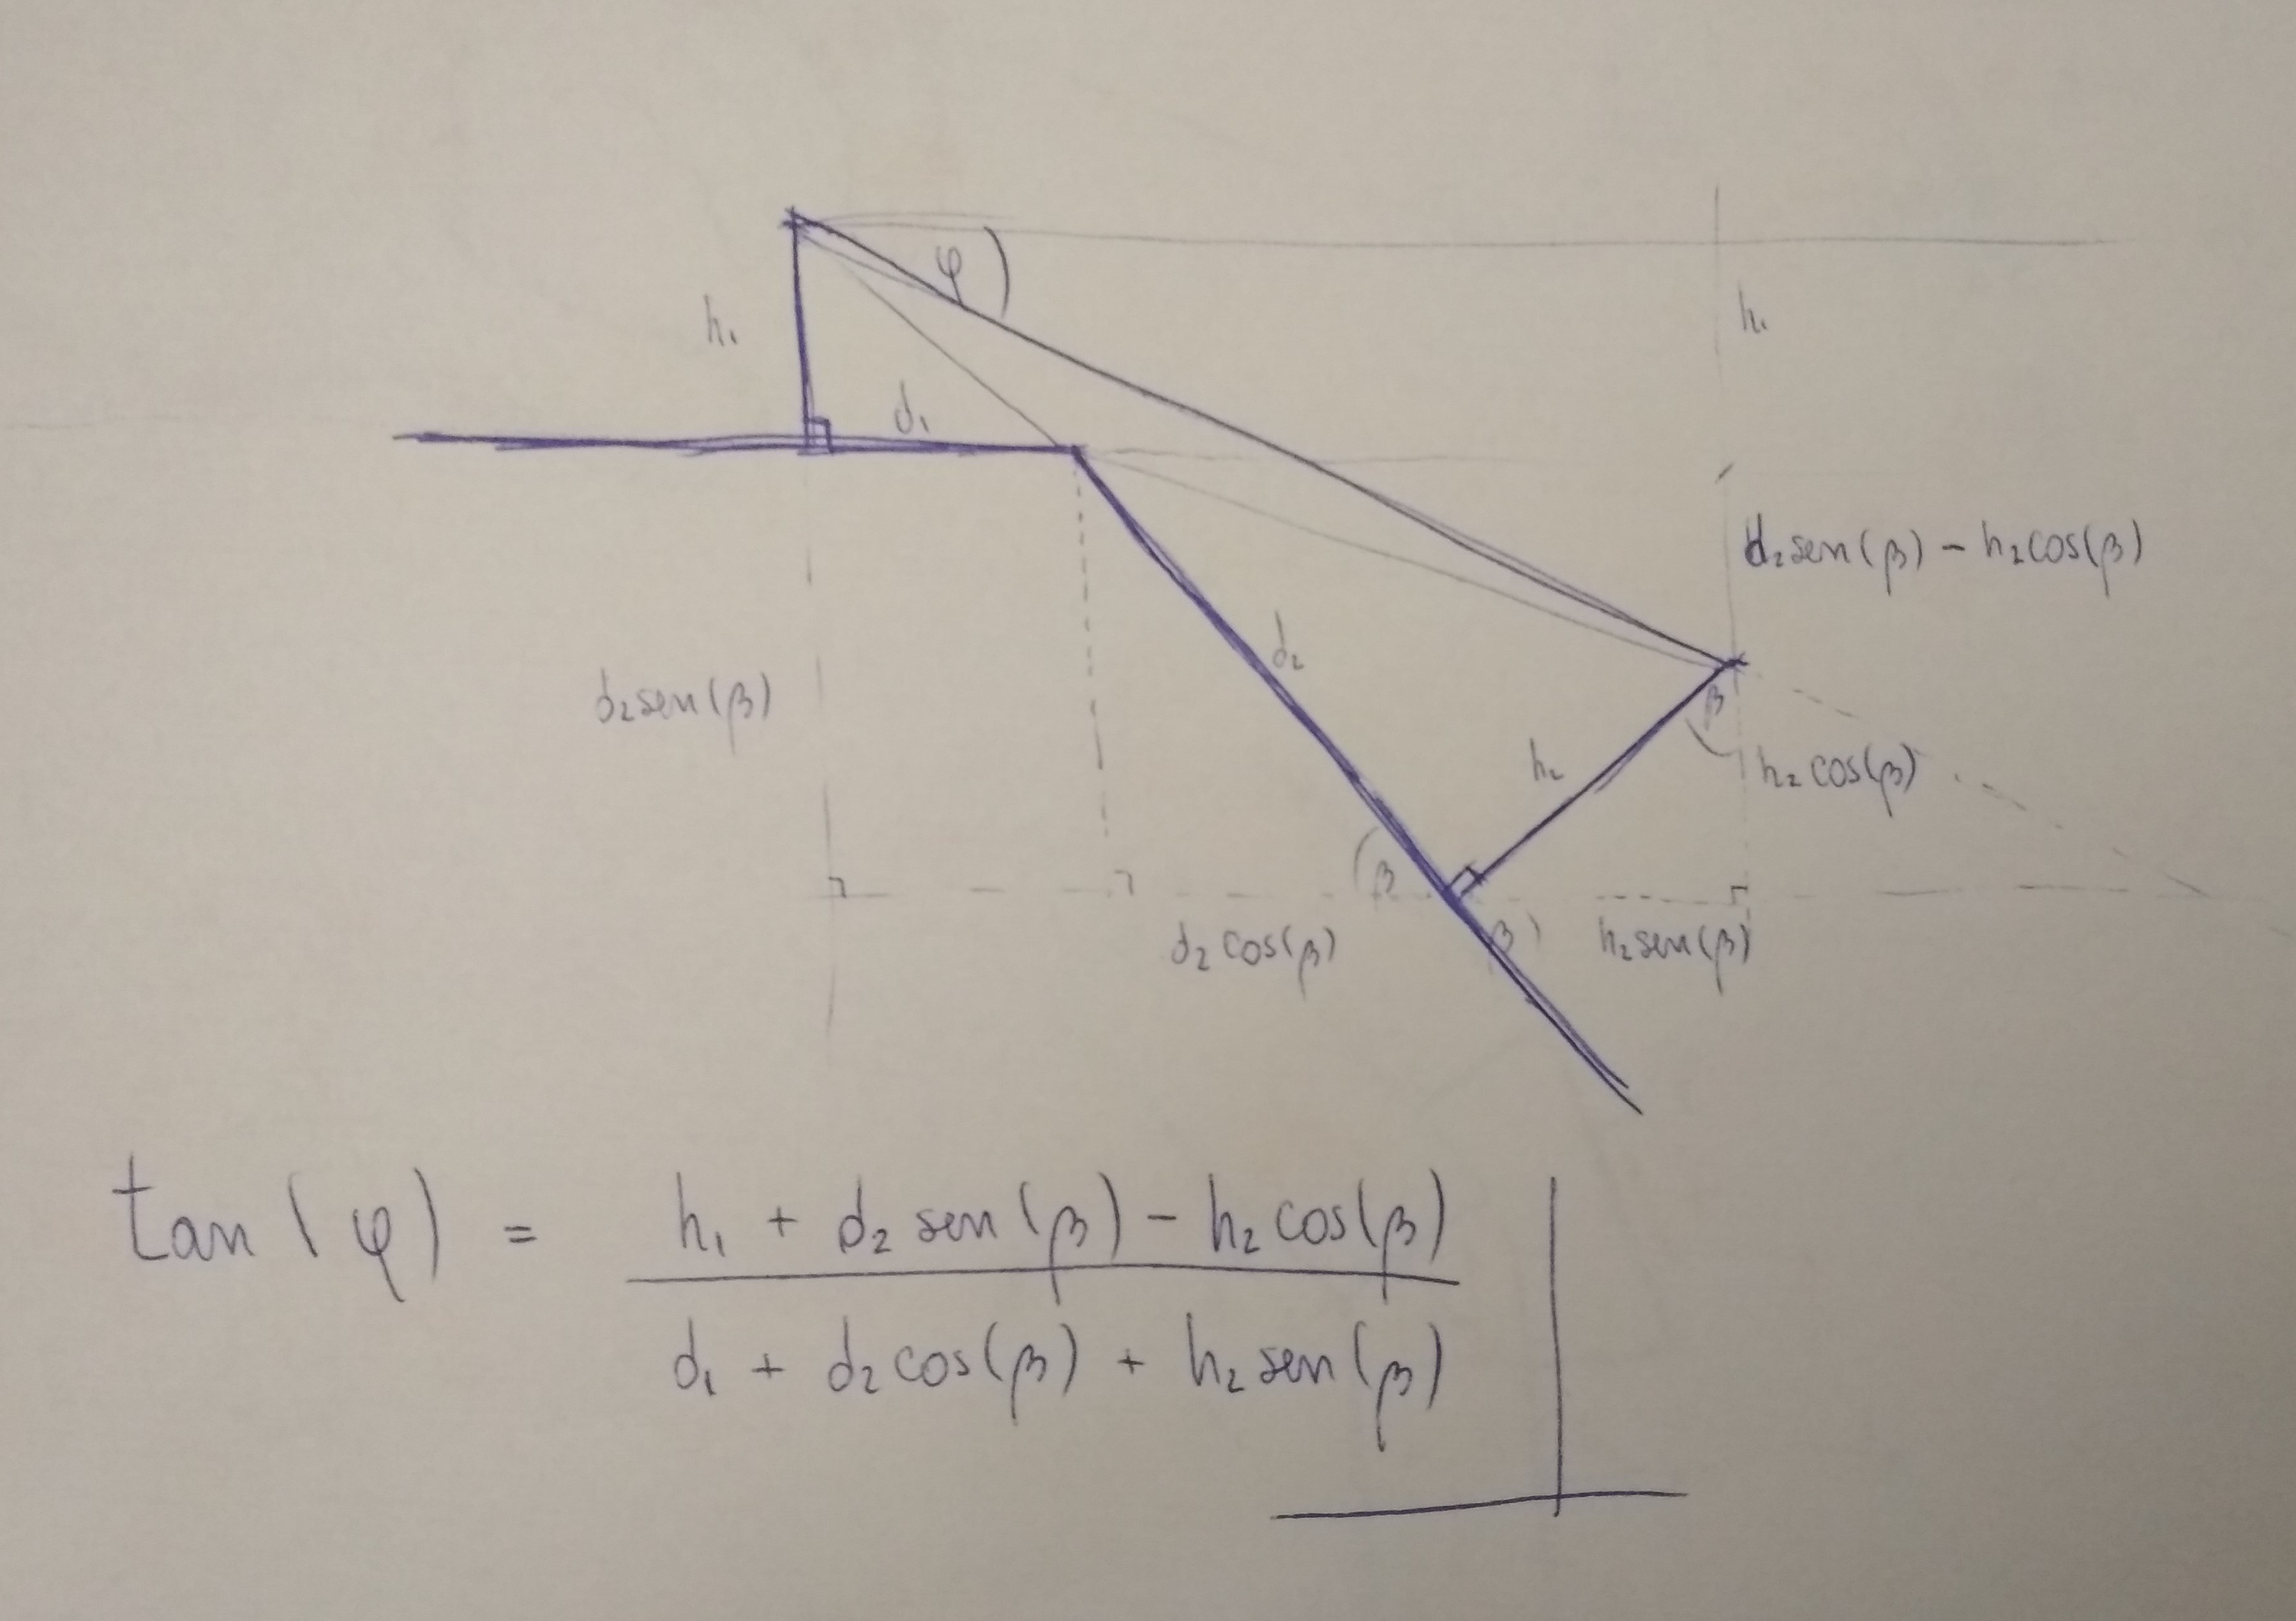 φ
h₁
h₁
d₁
d₂sen(β) - h₂cos(β)
d₂
d₂sen(β)
β
h₂
h₂cos(β)
β
β
d₂cos(β)
h₂sen(β)
tan(φ) = h₁ + d₂ sen(β) - h₂ cos(β)
d₁ + d₂ cos(β) + h₂ sen(β)